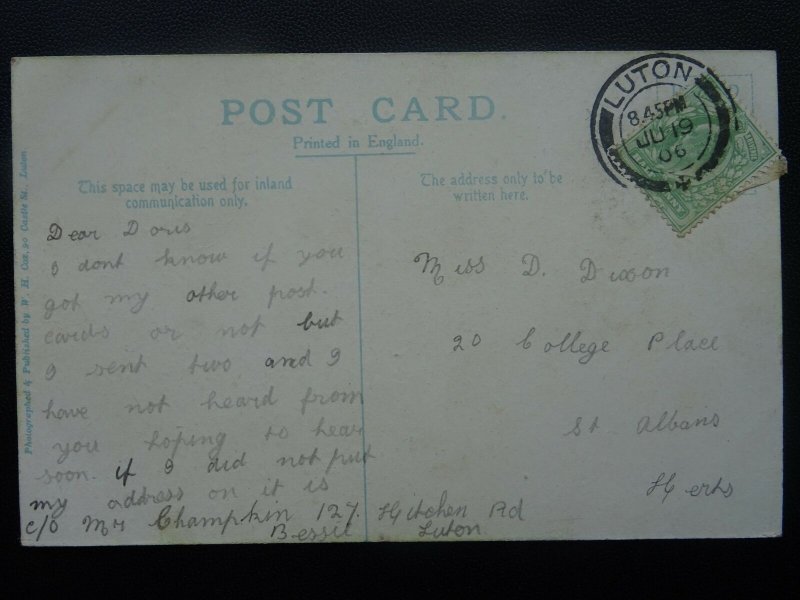 POST CARD.
Printed in England.
This space may be used for inland
communication only.
The address only to be
written here.
LUTON
8.45PM
JU 19
06
Photographed & Published by W. H. Cox, 90 Castle St. Luton
Dear Doris
I dont know if you
got my other post.
cards or not but
I sent two and I
have not heard from
you hoping to hear
soon. if I did not put
my address on it is
c/o Mr Champkin 127. Hitchen Rd
Bessie Luton
Miss D. Dixon
20 College Place
St Albans
Herts